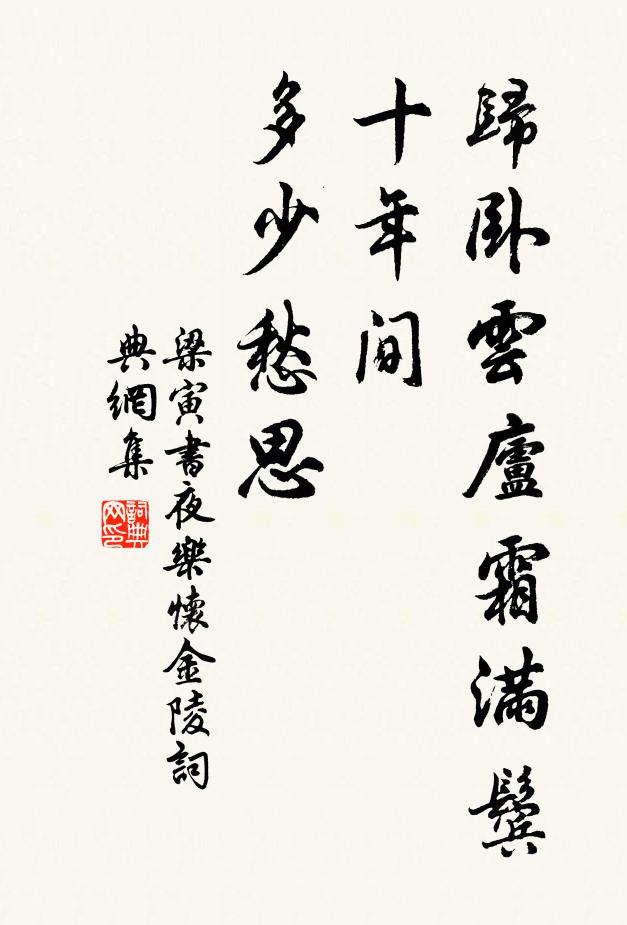 歸臥雲廬霜滿鬢
十年間
多少愁思
梁寅書夜樂懷金陵詞
典網集
詞典網印